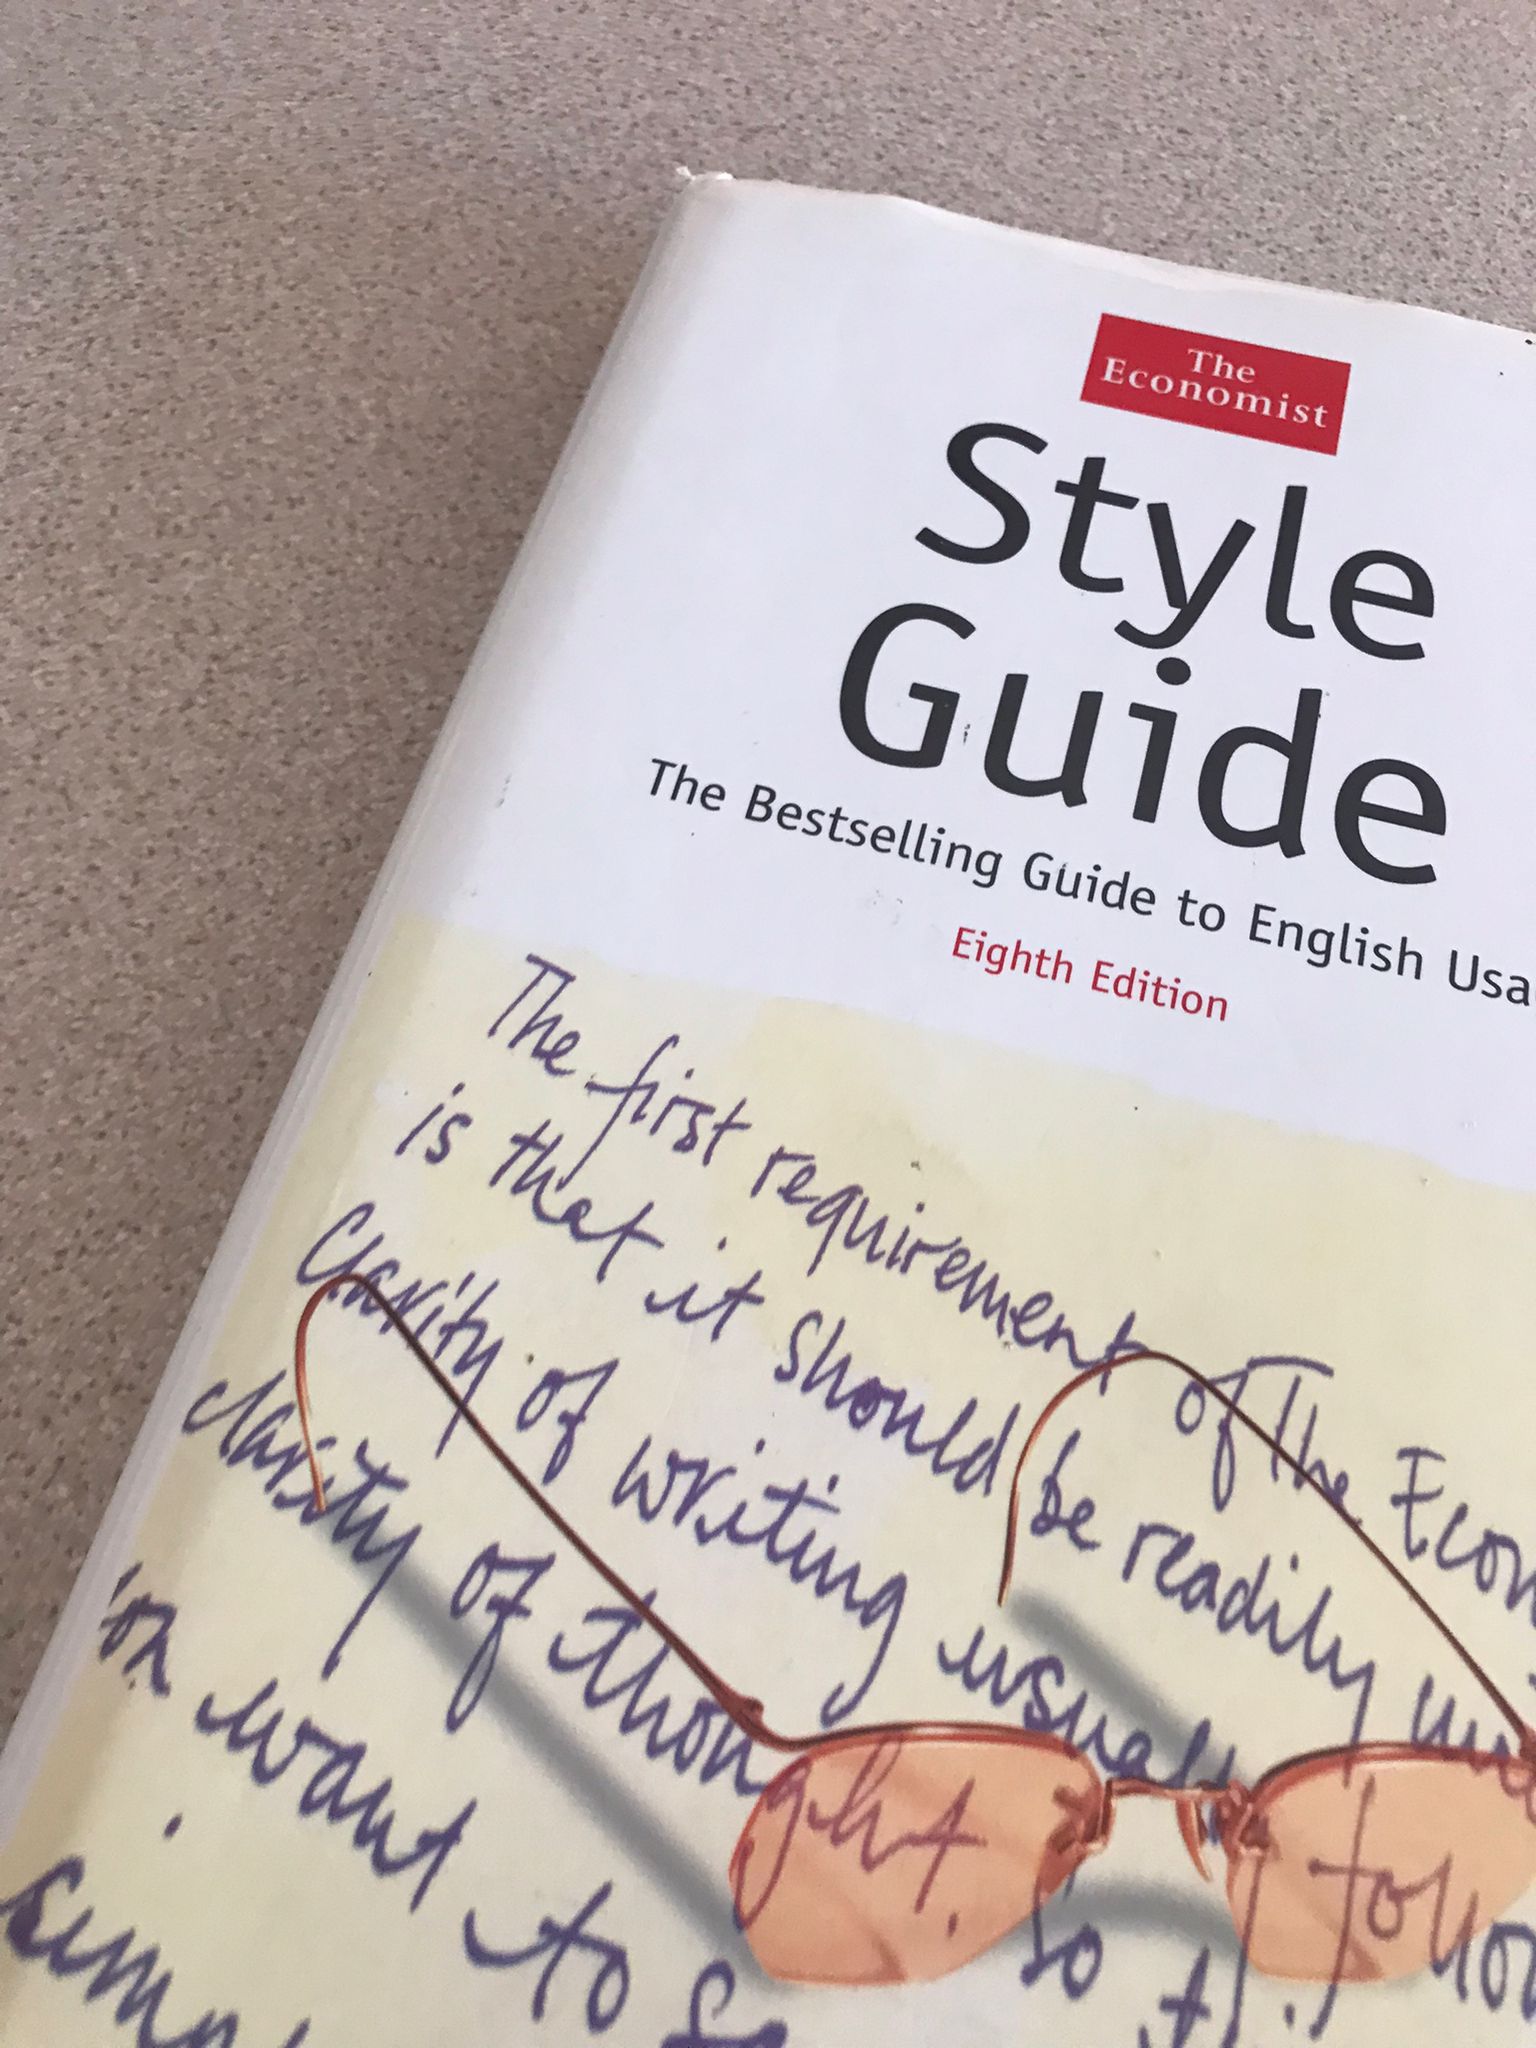 The
Economist
Style
Guide
The Bestselling Guide to English Usa
Eighth Edition
The first requirement of The Econ
is that it should be readily
Clarity of writing usually follow
clarity of thought. So
want to